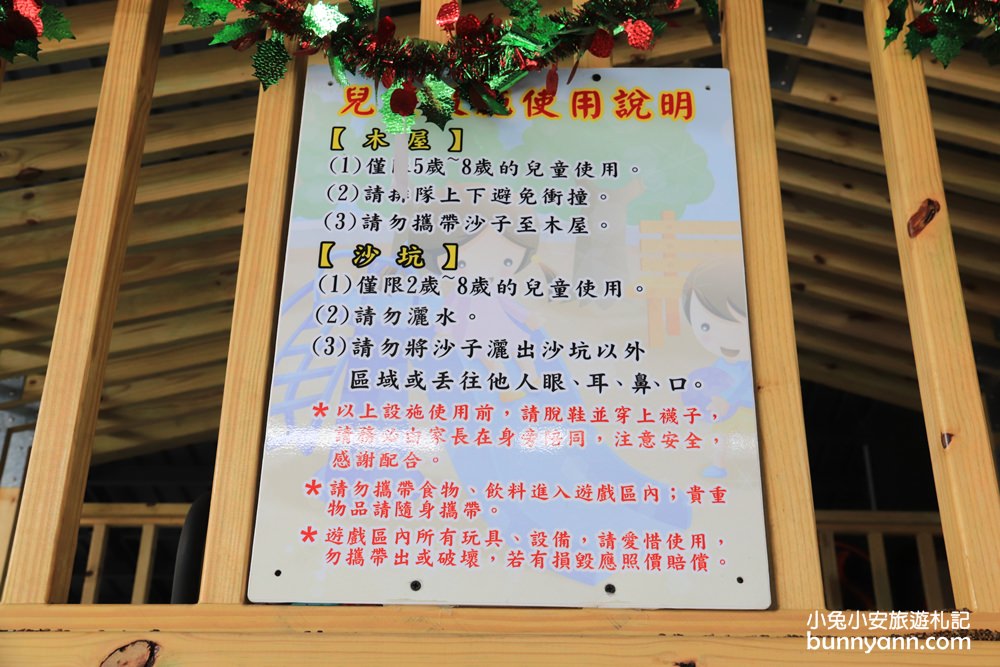 兒施使用說明
【木屋】
(1)僅5歲~8歲的兒童使用。
(2)請排隊上下避免衝撞。
(3)請勿攜帶沙子至木屋。
【沙坑】
(1)僅限2歲~8歲的兒童使用。
(2)請勿灑水。
(3)請勿將沙子灑出沙坑以外
區域或丟往他人眼、耳、鼻、口。
*以上設施使用前，請脫鞋並穿上襪子，
請務必由家長在身旁陪同，注意安全，
感謝配合。
*請勿攜帶食物、飲料進入遊戲區內；貴重
物品請隨身攜帶。
*遊戲區內所有玩具、設備，請愛惜使用，
勿攜帶出或破壞，若有損毀應照價賠償。
小兔小安旅遊札記
bunnyann.com